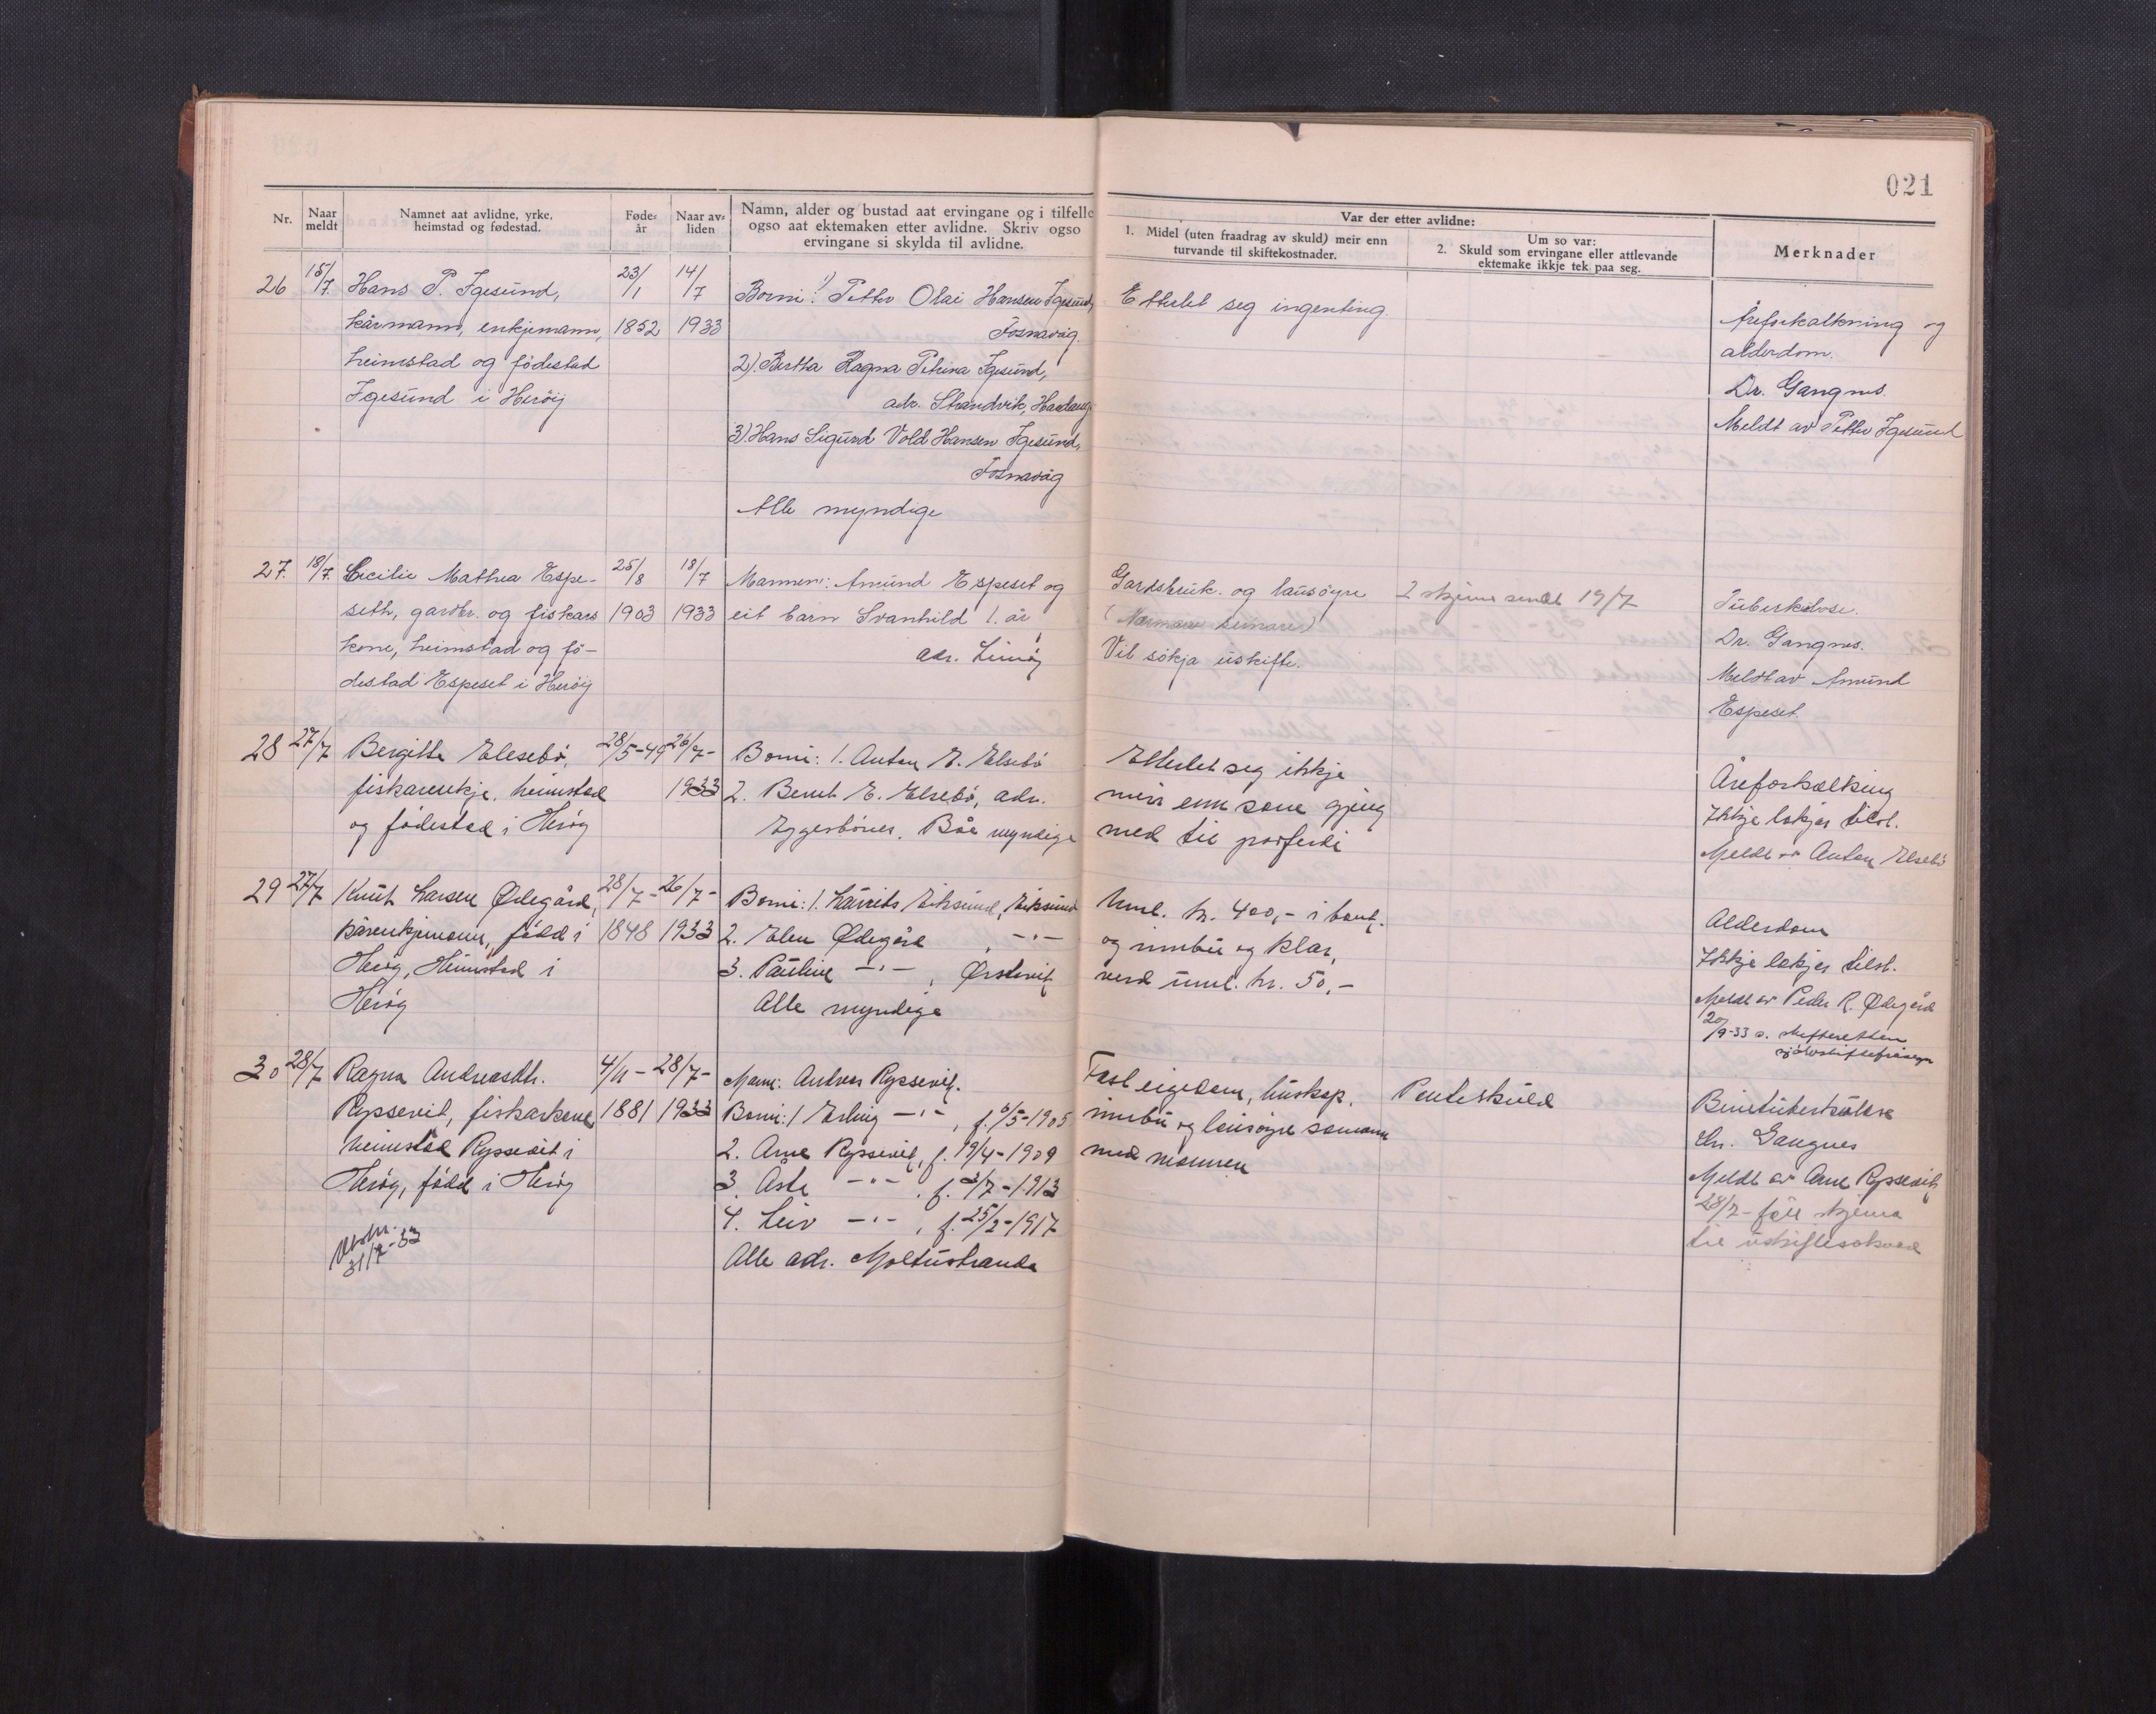 021
Nr.
Naar meldt
Namnet aat avlidne, yrke, heimstad og fødestad.
Føde-år
Naar av-liden
Namn, alder og bustad aat ervingane og i tilfelle
ogso aat ektemaken etter avlidne. Skriv ogso
ervingane si skylda til avlidne.
Var der etter avlidne:
1. Midel (uten fraadrag av skuld) meir enn
turvande til skiftekostnader.
Um so var:
2. Skuld som ervingane eller attlevande
ektemake ikkje tek paa seg.
Merknader
26 15/7. Hans P. Igesund, 23/1 14/7
kårmann, enkjemann, 1852 1933
heimstad og fødestad
Igesund i Herøy
Borni: 1) Petter Olai Hansen Igesund,
Fosnavåg.
2). Bertha Ragna Petrina Igesund,
adr. Strandvik, Hardang.
3). Hans Sigurd Vold Hansen Igesund,
Fosnavåg
Alle myndige
Etterlet seg ingenting.
Åreforkalkning og
alderdom.
Dr. Gangnes.
Meldt av Petter Igesund
27. 18/7. Cicilie Mathea Espe- 25/8 18/7
seth, gardbr. og fiskars 1903 1933
kone, heimstad og fø-
destad Espeset i Herøy
Mannen: Amund Espeset og
eit barn Svanhild 1. år
adr. Leinøy
Gardsbruk. og lausøyre
Vil søkja uskifte.
2 skjema sendt 19/7
Tuberkulose.
Dr. Gangnes.
Meldt av Amund
Espeset.
28 27/7 Bergitte Elsebø, 28/5-49 26/7-
fiskarenkje, heimstad 1933
og fødestad i Herøy
Borni: 1. Anton E. Elsebø
2. Bernt E. Elsebø, adr.
Eggesbønes. Båe myndige
Etterlet seg ikkje
meir enn som gjeng
med til jorferdi
Åreforkalking
Ikkje lækjar tilst.
Meldt av Anton Elsebø
29 27/7 Knut Larsen Ødegård, 28/7- 26/7-
kårenkjemann, fødd i 1848 1933
Herøy, Heimstad i
Herøy
Borni: 1. Laurits Eiksund, Eiksund
2. Elen Ødegård , -"-
3. Pauline -"- , Ørstavik
Alle myndige
Uml. kr. 400,- i bank.
og innbu og klær,
verd uml. kr. 50,-
Alderdom
Ikkje lækjar tilst.
Meldt av Peder R. Ødegård
20/9-33 s. skifteretten
30 28/7 Ragna Andreasdtr. 4/11- 28/7-
Røyssevik, fiskarkone 1881 1933
heimstad Røyssevik i
Herøy, fødd i Herøy
31/7-33
Mann: Andreas Røyssevik.
Borni: 1 Erling -"- , f. 6/5-1905
2. Arne Røyssevik, f. 19/4-1909
3. Åste -"- , f. 3/7-1913
4. Leiv -"- , f. 25/2-1917
Alle adr. Moltustranda
Fast eigedom, buskap,
innbu og lausøyre saman
med mannen
Panteskuld
Beintuberkulose
Dr. Gangnes
Meldt av Arne Røyssevik
28/7- fekk skjema
til uskiftesøknad